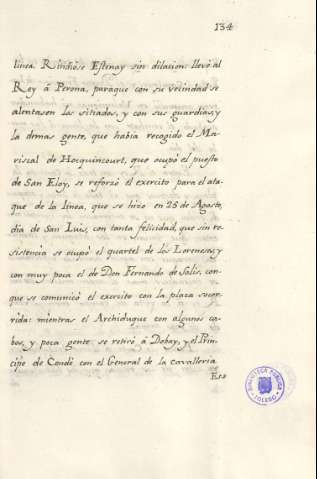 134
linea. Rindiose Estenay sin dilacion: llevó al
Rey á Perona, paraque con su vecindad se
alentasen los sitiados, y con sus guardias, y
la demas gente, que habia recogido el Ma-
riscal de Hocquincourt, que ocupó el puesto
de San Eloy, se reforzó el exercito para el ata-
que de la linea, que se hizo en 25 de Agosto,
dia de San Luis, con tanta felicidad, que sin re-
sistencia se ocupó el quartel de los Loreneses, y
con muy poca el de Don Fernando de Solis, con-
que se comunicó el exercito con la plaza socor-
rida: mientras el Archiduque con algunos ca-
bos, y poca gente se retiró á Dobay, y el Prin-
cipe de Condé con el General de la cavalleria
BIBLIOTECA PUBLICA
TOLEDO